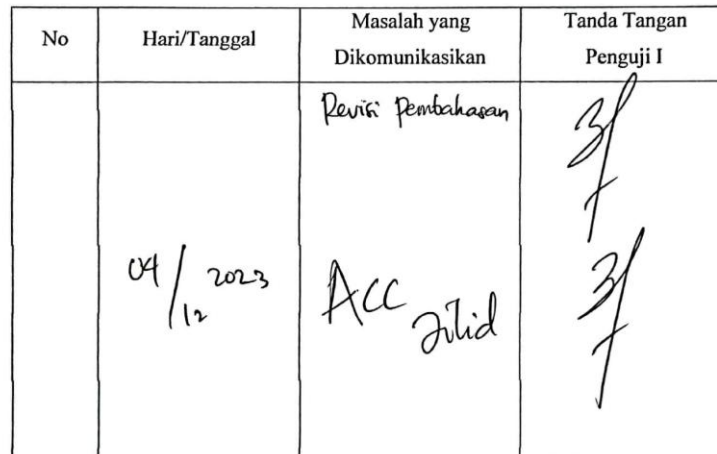 No
Hari/Tanggal
Masalah yang
Dikomunikasikan
Tanda Tangan
Penguji I
Revisi Pembahasan
04/12 2023
ACC Jilid